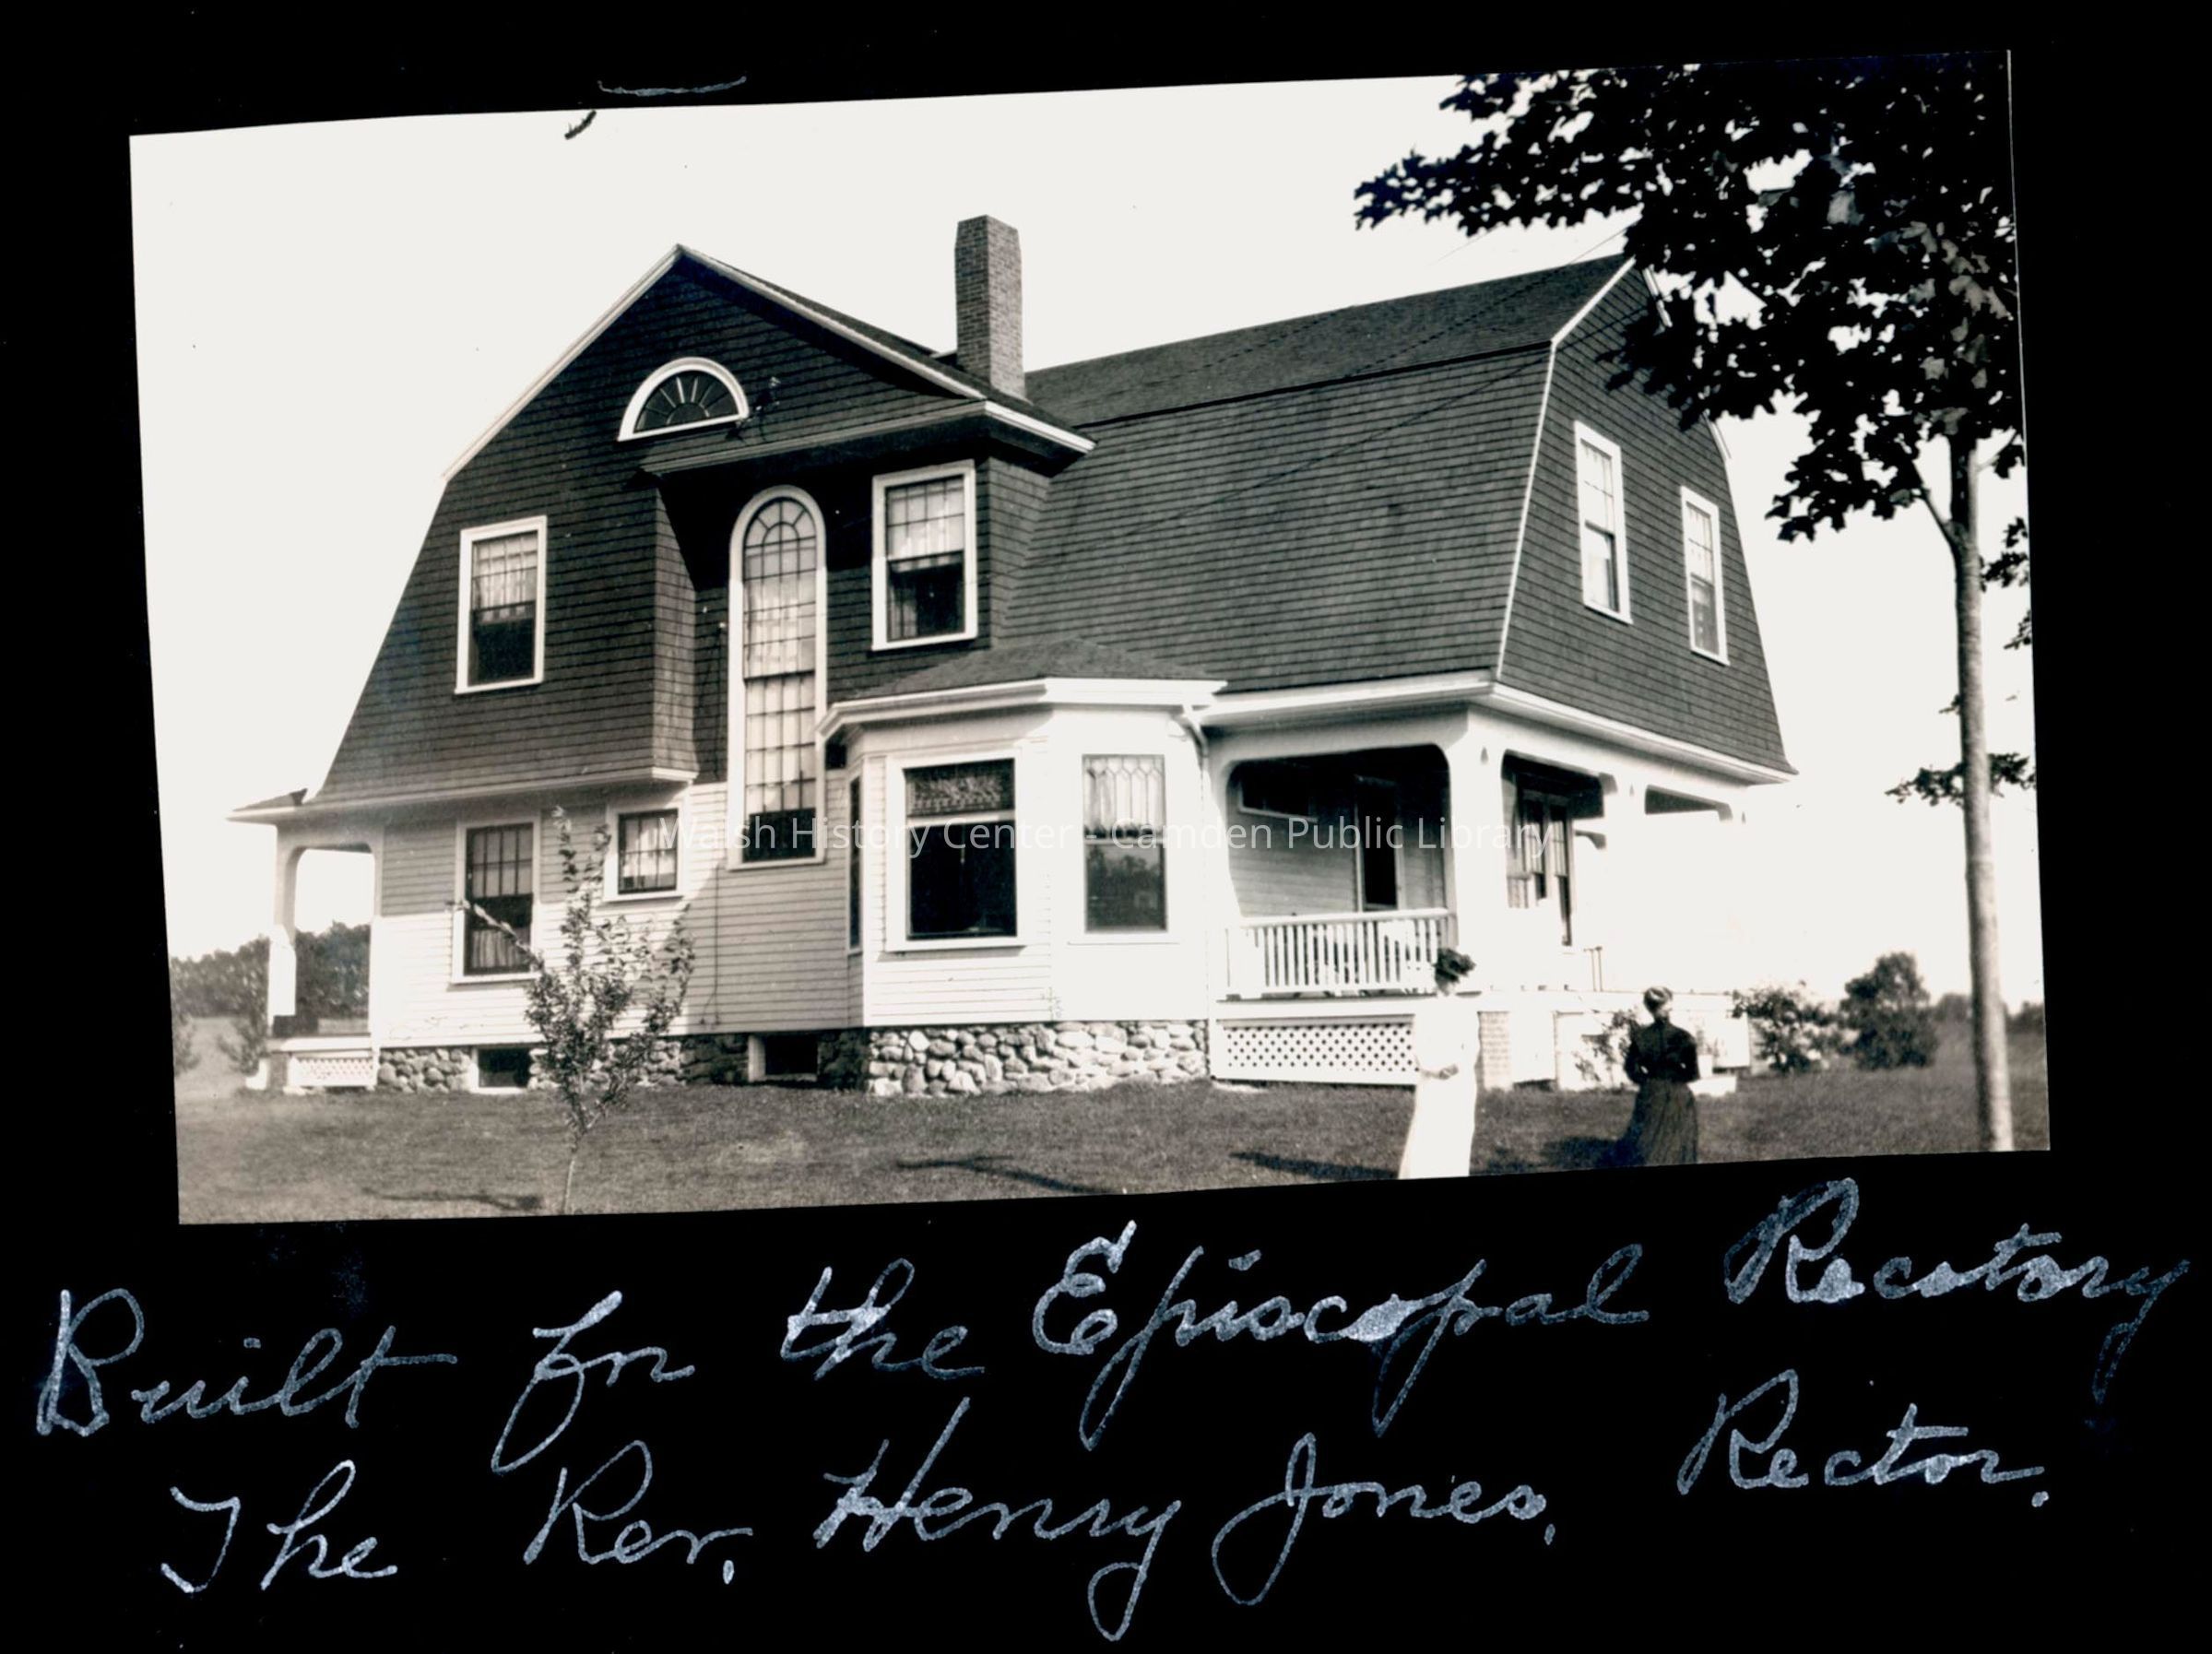 Walsh History Center - Camden Public Library
Built for the Episcopal Rectory
The Rev. Henry Jones, Rector.